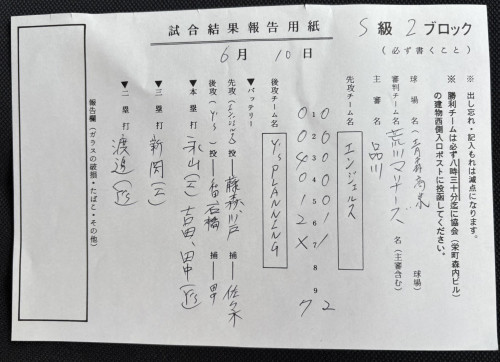 試合結果報告用紙
S級 2ブロック
(必ず書くこと)
6月 10日
※ 出し忘れ・記入もれは減点になります。
※ 勝利チームは必ず八時三十分迄に協会(栄町森内ビル
の建物西側入口ポストに投函してください。
球場名(青森高東 球場)
審判チーム名 荒川マリナーズ 名(主審含む)
主審名 品川
先攻チーム名 エンジェルス
0 0 0 0 0 1 1 2
1 2 3 4 5 6 7 8 9
0 0 4 0 1 2 X 7
後攻チーム名 Y's PLANNING
▼バッテリー
先攻(エンジェルス)投── 藤森、 捕── 佐々木
後攻(Y's)投── 石橋 捕──
▼本塁打 永山(エ) 吉田、田中(Y's)
▼三塁打 新岡(エ)
▼二塁打 渡邉(Y's)
報告欄(ガラスの破損・たばこ・その他)